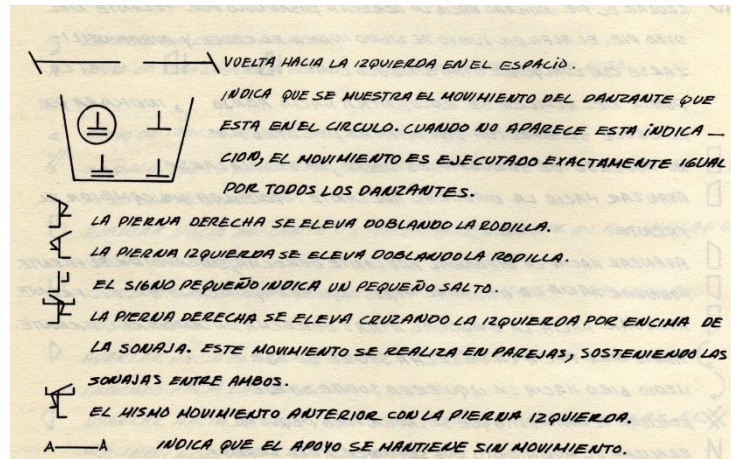 VUELTA HACIA LA IZQUIERDA EN EL ESPACIO.
INDICA QUE SE MUESTRA EL MOVIMIENTO DEL DANZANTE QUE
ESTA EN EL CIRCULO. CUANDO NO APARECE ESTA INDICA —
CION, EL MOVIMIENTO ES EJECUTADO EXACTAMENTE IGUAL
POR TODOS LOS DANZANTES.
LA PIERNA DERECHA SE ELEVA DOBLANDO LA RODILLA.
LA PIERNA IZQUIERDA SE ELEVA DOBLANDO LA RODILLA.
EL SIGNO PEQUEÑO INDICA UN PEQUEÑO SALTO.
LA PIERNA DERECHA SE ELEVA CRUZANDO LA IZQUIERDA POR ENCIMA DE
LA SONAJA. ESTE MOVIMIENTO SE REALIZA EN PAREJAS, SOSTENIENDO LAS
SONAJAS ENTRE AMBOS.
EL MISMO MOVIMIENTO ANTERIOR CON LA PIERNA IZQUIERDA.
A——A INDICA QUE EL APOYO SE MANTIENE SIN MOVIMIENTO.